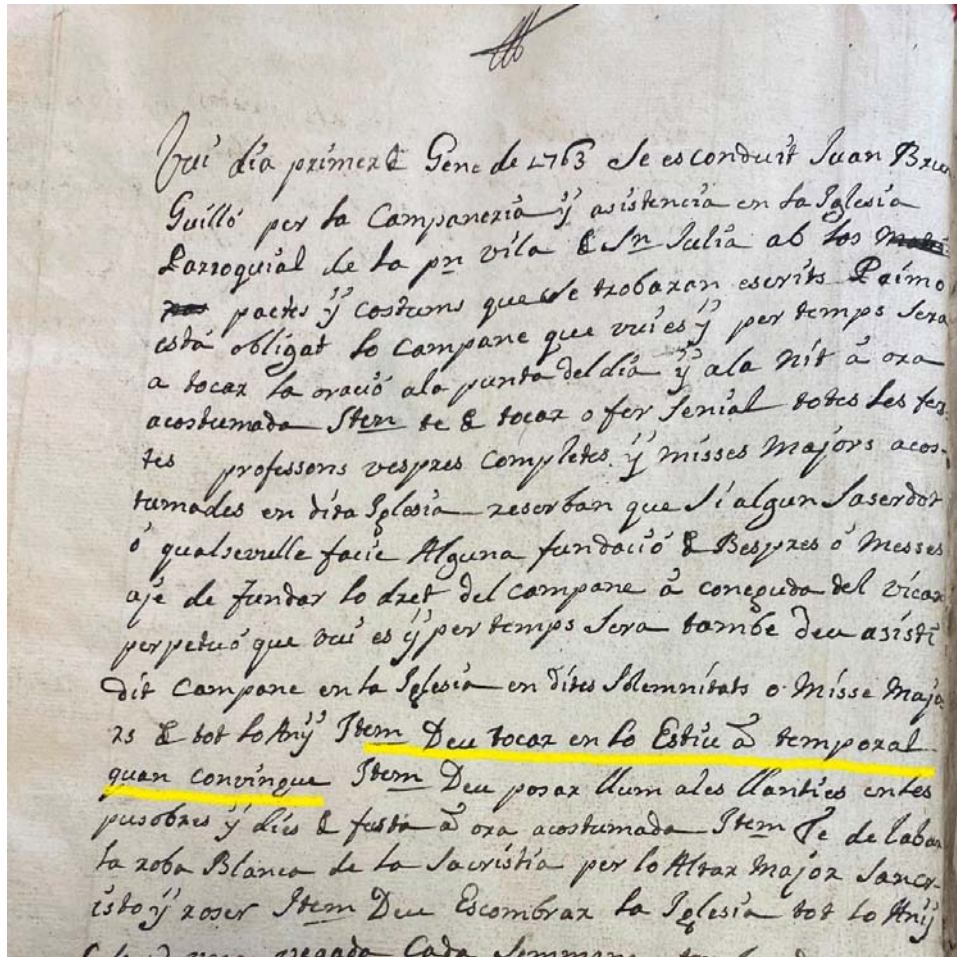 Vui dia primer de Gene de 1763 Se es conduit Juan Brun
Guilló per la Campaneria ÿ asistencia en la Iglesia
Parroquial de la pn vila de Sn Julia ab los
pactes ÿ costums que se trobaran escrits Primo
está obligat lo campane que vui es ÿ per temps sera
a tocar la oració ala punta del dia ÿ ala nit á ora
acostumada Item te de tocar o fer senial totes les fes-
tes professons vespres completes ÿ misses Majors acos-
tumades en dita Iglesia reserban que si algun Saserdot
ó qualsevulle facie Alguna fundació de Bespres ó Messes
aje de fundar lo dret del campane á coneguda del vicar
perpetuó que vui es ÿ per temps sera també deu asisti
dit Campane en la Iglesia en dites Solemnitats o Misse Majo-
rs de tot lo Anÿ Item Deu tocar en lo Estiu á temporal
quan convingue Item Deu posar llum ales llanties en les
ÿ dies de festa á ora acostumada Item Te de labar
la roba Blanca de la Sacristia per lo Altar Major Sancr-
isto ÿ roser Item Deu Escombrar la Iglesia tot lo Anÿ
vegada Cada Semmane